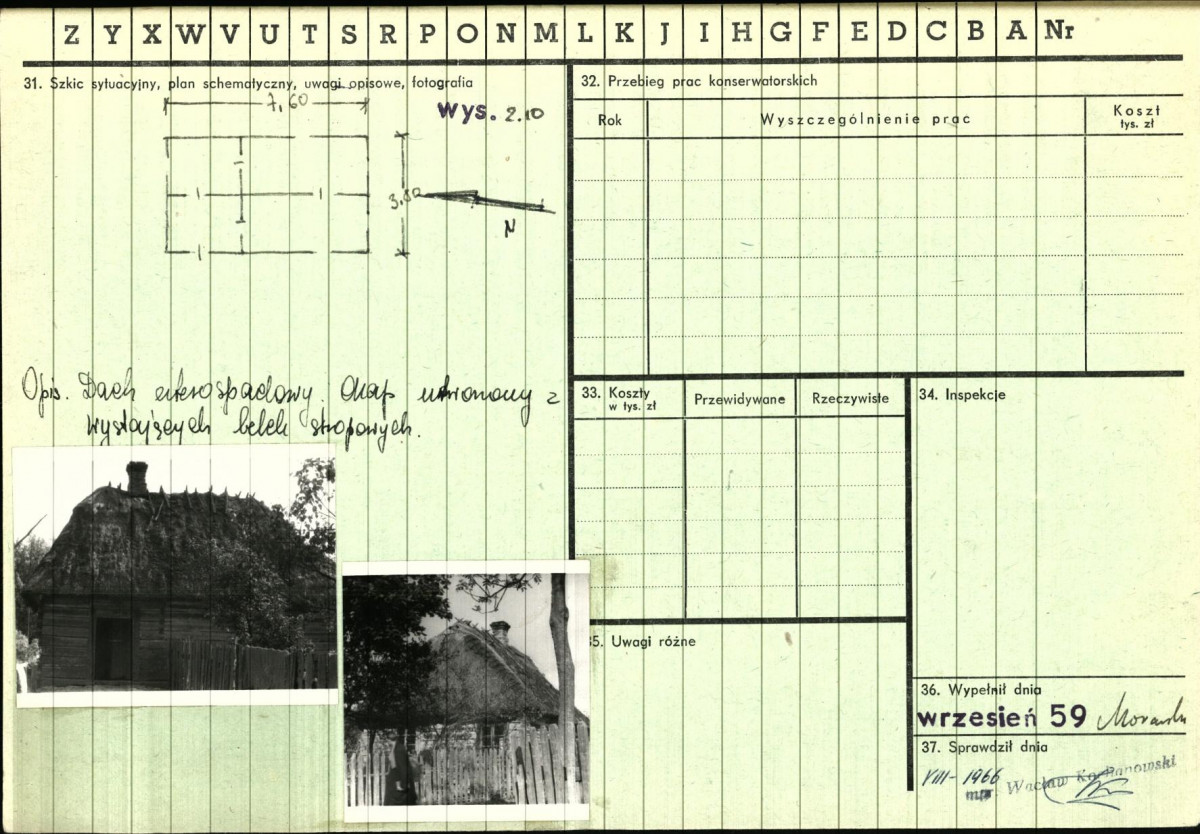 Z Y X W V U T S R P O N M L K J I H G F E D C B A Nr
31. Szkic sytuacyjny, plan schematyczny, uwagi opisowe, fotografia
7,60
wys. 2.10
3,80
N
Opis. Dach czterospadowy. Okap utworzony z
wystających belek stropowych.
32. Przebieg prac konserwatorskich
Rok
Wyszczególnienie prac
Koszt
tys. zł
33. Koszty
w tys. zł
Przewidywane
Rzeczywiste
34. Inspekcje
35. Uwagi różne
36. Wypełnił dnia
wrzesień 59
37. Sprawdził dnia
VIII-1966
mgr Wacław